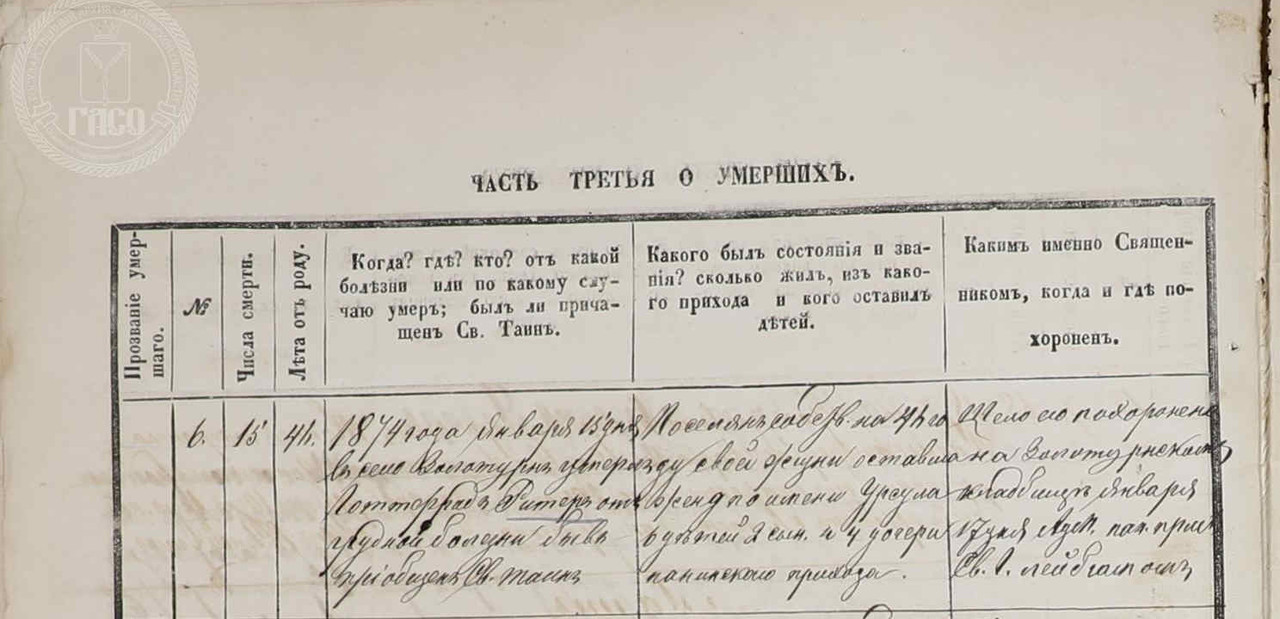 ГАСО
ЧАСТЬ ТРЕТЬЯ О УМЕРШИХЪ.
Прозваніе умер-
шаго.
№
Числа смерти.
Лѣта отъ роду.
Когда? гдѣ? кто? отъ какой
болѣзни или по какому слу-
чаю умеръ; былъ ли прича-
щенъ Св. Таинъ.
Какого былъ состоянія и зва-
нія? сколько жилъ, изъ како-
го прихода и кого оставилъ
дѣтей.
Какимъ именно Священ-
никомъ, когда и гдѣ по-
хороненъ.
6.
15
44.
1874 года Января 15 дня
въ село Золотурнъ умеръ
Готтерпадъ Ритеръ отъ
грудной болезни бывъ
пріобщенъ Св. таинъ
Поселянъ собств. на 44 го
ду своей жизни оставилъ
жену по имени Урсула
6 дѣтей 2 сын. и 4 дочери
панинского прихода.
Тело его похоронено
на Золотурнскомъ
кладбищѣ Января
17 дня
Св.